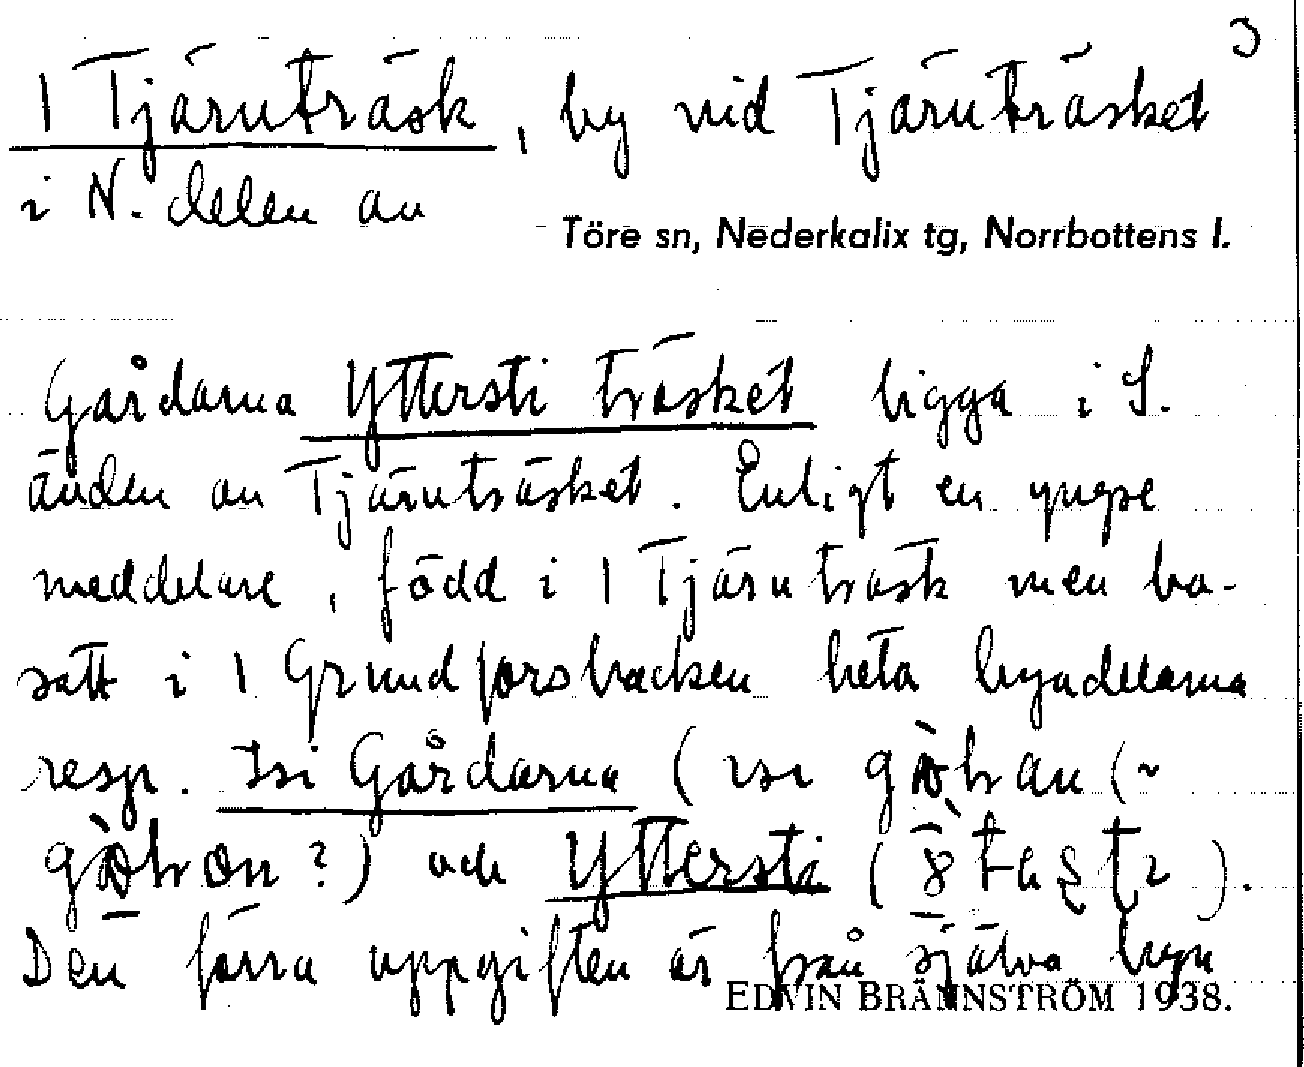 3
1 Tjärnträsk, by vid Tjärnträsket
i N. delen av
Töre sn, Nederkalix tg, Norrbottens l.
Gårdarna Yttersti träsket ligga i S.
änden av Tjärnträsket. Enligt en yngre
meddelare, född i 1 Tjärnträsk men bo-
satt i 1 Grundforsbacken heta byadelarna
resp. Isi Gårdarna (
?) och Yttersti (
Den förra uppgiften är från själva byn
EDVIN BRÄNNSTRÖM 1938.